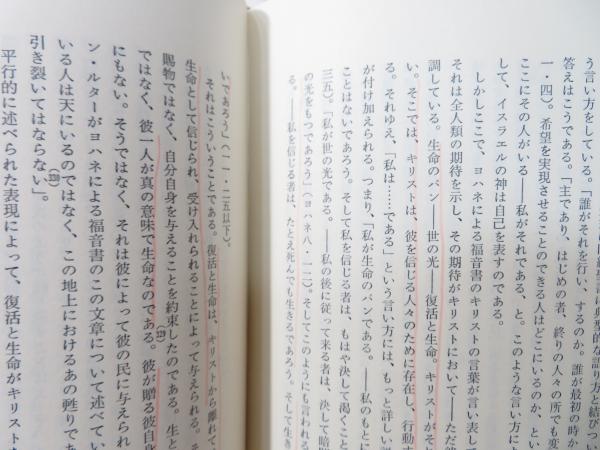 う言い方をしている。「誰がそれを行い、するのか。誰が最初の時か
答えはこうである。「主であり、はじめの者、終りの人々の所でも変
一・四）。希望を実現させることのできる人はどこにいるのか、とい
ここにその人がいる――私がそれである、と。このような言い方によ
して、イスラエルの神は自己を表すのである。
しかしここで、ヨハネによる福音書のキリストの言葉が言い表して
それは全人類の期待を示し、その期待がキリストにおいて――ただ彼
調している。生命のパン――世の光――復活と生命。キリストがそ
い。そこでは、キリストは、彼を信じる人々のために存在し、行動
る。それゆえ、「私は……である」という言い方には、もっと詳しい
が付け加えられる。つまり、「私が生命のパンである。――私のもとに
ことはないであろう。そして私を信じる者は、もはや決して渇くこと
三五）。「私が世の光である。――私の後に従って来る者は、決して暗
の光をもつであろう」（ヨハネ八・一二）。そしてこのようにも言われる
る。――私を信じる者は、たとえ死んでも生きるであろう。そして生き
いであろう」（一一・二五以下）。
それはこういうことである。復活と生命は、キリストから離れて、
生命として信じられ、受け入れられることによって与えられる。そ
賜物ではなく、自分自身を与えることを約束したのである。生と
ではなく、彼一人が真の意味で生命なのである。彼が贈る彼自身
にもない。そうではなく、それは彼によって彼の民に与えられ
ン・ルターがヨハネによる福音書のこの文章について述べてい
いる人は天にいるのではなく、この地上におけるあの甦りであ
引き裂いてはならない」。
平行的に述べられた表現によって、復活と生命がキリスト